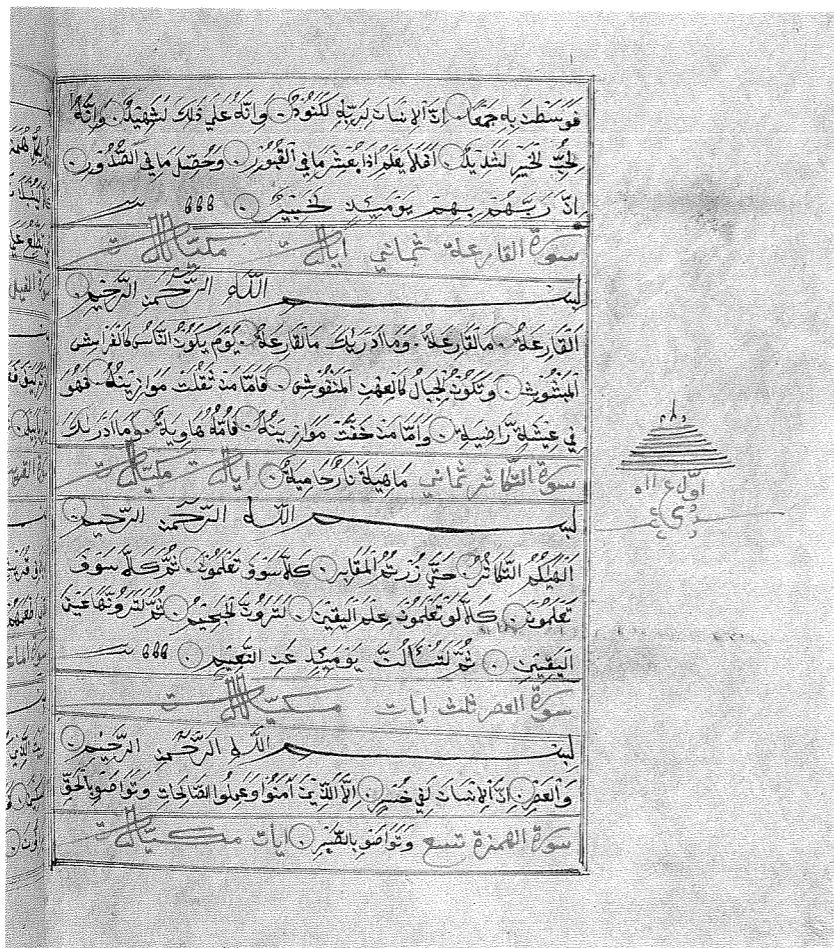 فَوَسَطْنَ بِهِ جَمْعًا ○ اِنَّ الْاِنْسَانَ لِرَبِّهِ لَكَنُودٌ ○ وَاِنَّهُ عَلٰي ذٰلِكَ لَشَهِيدٌ ○ وَاِنَّهُ
لِحُبِّ الْخَيْرِ لَشَدِيدٌ ○ اَفَلَا يَعْلَمُ اِذَا بُعْثِرَ مَا فِي الْقُبُوْرِ ○ وَحُصِّلَ مَا فِي الصُّدُوْرِ ○
اِنَّ رَبَّهُمْ بِهِمْ يَوْمَئِذٍ لَخَبِيْرٌ ○
سورة القارعة ثماني ايات مكية
بِسْمِ اللّٰهِ الرَّحْمٰنِ الرَّحِيْمِ ○
اَلْقَارِعَةُ ○ مَا الْقَارِعَةُ ○ وَمَا اَدْرٰيكَ مَا الْقَارِعَةُ ○ يَوْمَ يَكُوْنُ النَّاسُ كَالْفَرَاشِ
الْمَبْثُوْثِ ○ وَتَكُوْنُ الْجِبَالُ كَالْعِهْنِ الْمَنْفُوْشِ ○ فَاَمَّا مَنْ ثَقُلَتْ مَوَازِيْنُهُ ○ فَهُوَ
فِي عِيْشَةٍ رَّاضِيَةٍ ○ وَاَمَّا مَنْ خَفَّتْ مَوَازِيْنُهُ ○ فَاُمُّهُ هَاوِيَةٌ ○ وَمَا اَدْرٰيكَ
مَاهِيَهْ نَارٌ حَامِيَةٌ ○ سورة التكاثر ثماني ايات مكيات
بِسْمِ اللّٰهِ الرَّحْمٰنِ الرَّحِيْمِ ○
اَلْهٰيكُمُ التَّكَاثُرُ ○ حَتّٰي زُرْتُمُ الْمَقَابِرَ ○ كَلَّا سَوْفَ تَعْلَمُوْنَ ○ ثُمَّ كَلَّا سَوْفَ
تَعْلَمُوْنَ ○ كَلَّا لَوْ تَعْلَمُوْنَ عِلْمَ الْيَقِيْنِ ○ لَتَرَوُنَّ الْجَحِيْمَ ○ ثُمَّ لَتَرَوُنَّهَا عَيْنَ
الْيَقِيْنِ ○ ثُمَّ لَتُسْاَلُنَّ يَوْمَئِذٍ عَنِ النَّعِيْمِ ○
سورة العصر ثلث ايات مكيات
بِسْمِ اللّٰهِ الرَّحْمٰنِ الرَّحِيْمِ ○
وَالْعَصْرِ ○ اِنَّ الْاِنْسَانَ لَفِي خُسْرٍ ○ اِلَّا الَّذِيْنَ اٰمَنُوْا وَعَمِلُوا الصَّالِحَاتِ وَتَوَاصَوْ بِالْحَقِّ
وَتَوَاصَوْ بِالصَّبْرِ ○ سورة الهمزة تسع ايات مكيات